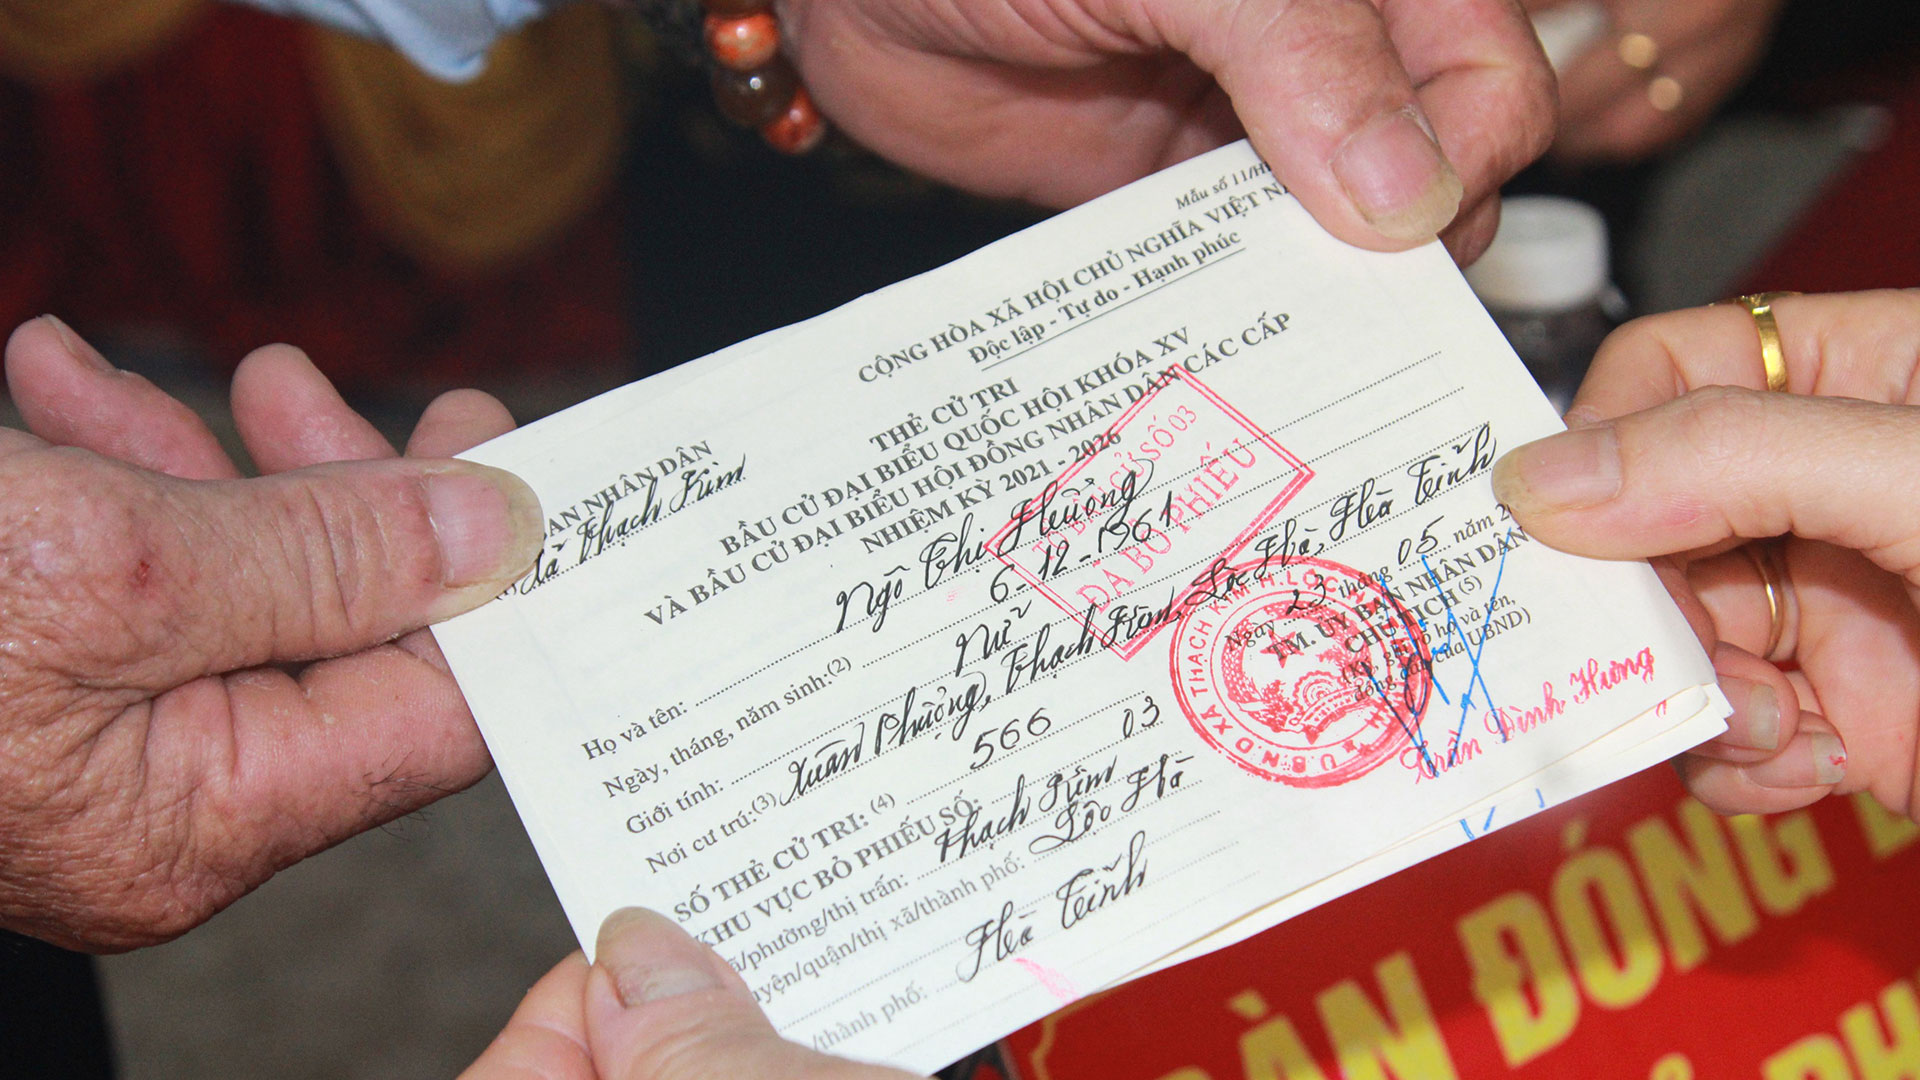 Mẫu số 11/H
CỘNG HÒA XÃ HỘI CHỦ NGHĨA VIỆT NA
Độc lập - Tự do - Hạnh phúc
BAN NHÂN DÂN
Xã Thạch Kim
THẺ CỬ TRI
BẦU CỬ ĐẠI BIỂU QUỐC HỘI KHÓA XV
VÀ BẦU CỬ ĐẠI BIỂU HỘI ĐỒNG NHÂN DÂN CÁC CẤP
NHIỆM KỲ 2021 - 2026
TỔ BẦU CỬ SỐ 03
ĐÃ BỎ PHIẾU
Họ và tên: Ngô Thị Hường
Ngày, tháng, năm sinh:(2) 6-12-1961
Giới tính: Nữ
Nơi cư trú:(3) Xuân Phượng, Thạch Kim, Lộc Hà, Hà Tĩnh
SỐ THẺ CỬ TRI: (4) 566
KHU VỰC BỎ PHIẾU SỐ: 03
ã/phường/thị trấn: Thạch Kim
uyện/quận/thị xã/thành phố: Lộc Hà
/thành phố: Hà Tĩnh
Ngày 23 tháng 05 năm 2
TM. ỦY BAN NHÂN DÂN
CHỦ TỊCH (5)
(Ký, ghi rõ họ và tên,
đóng dấu của UBND)
U.B.N.D XÃ THẠCH KIM H. LỘC
Trần Đình Hưng
ÀN ĐÓNG